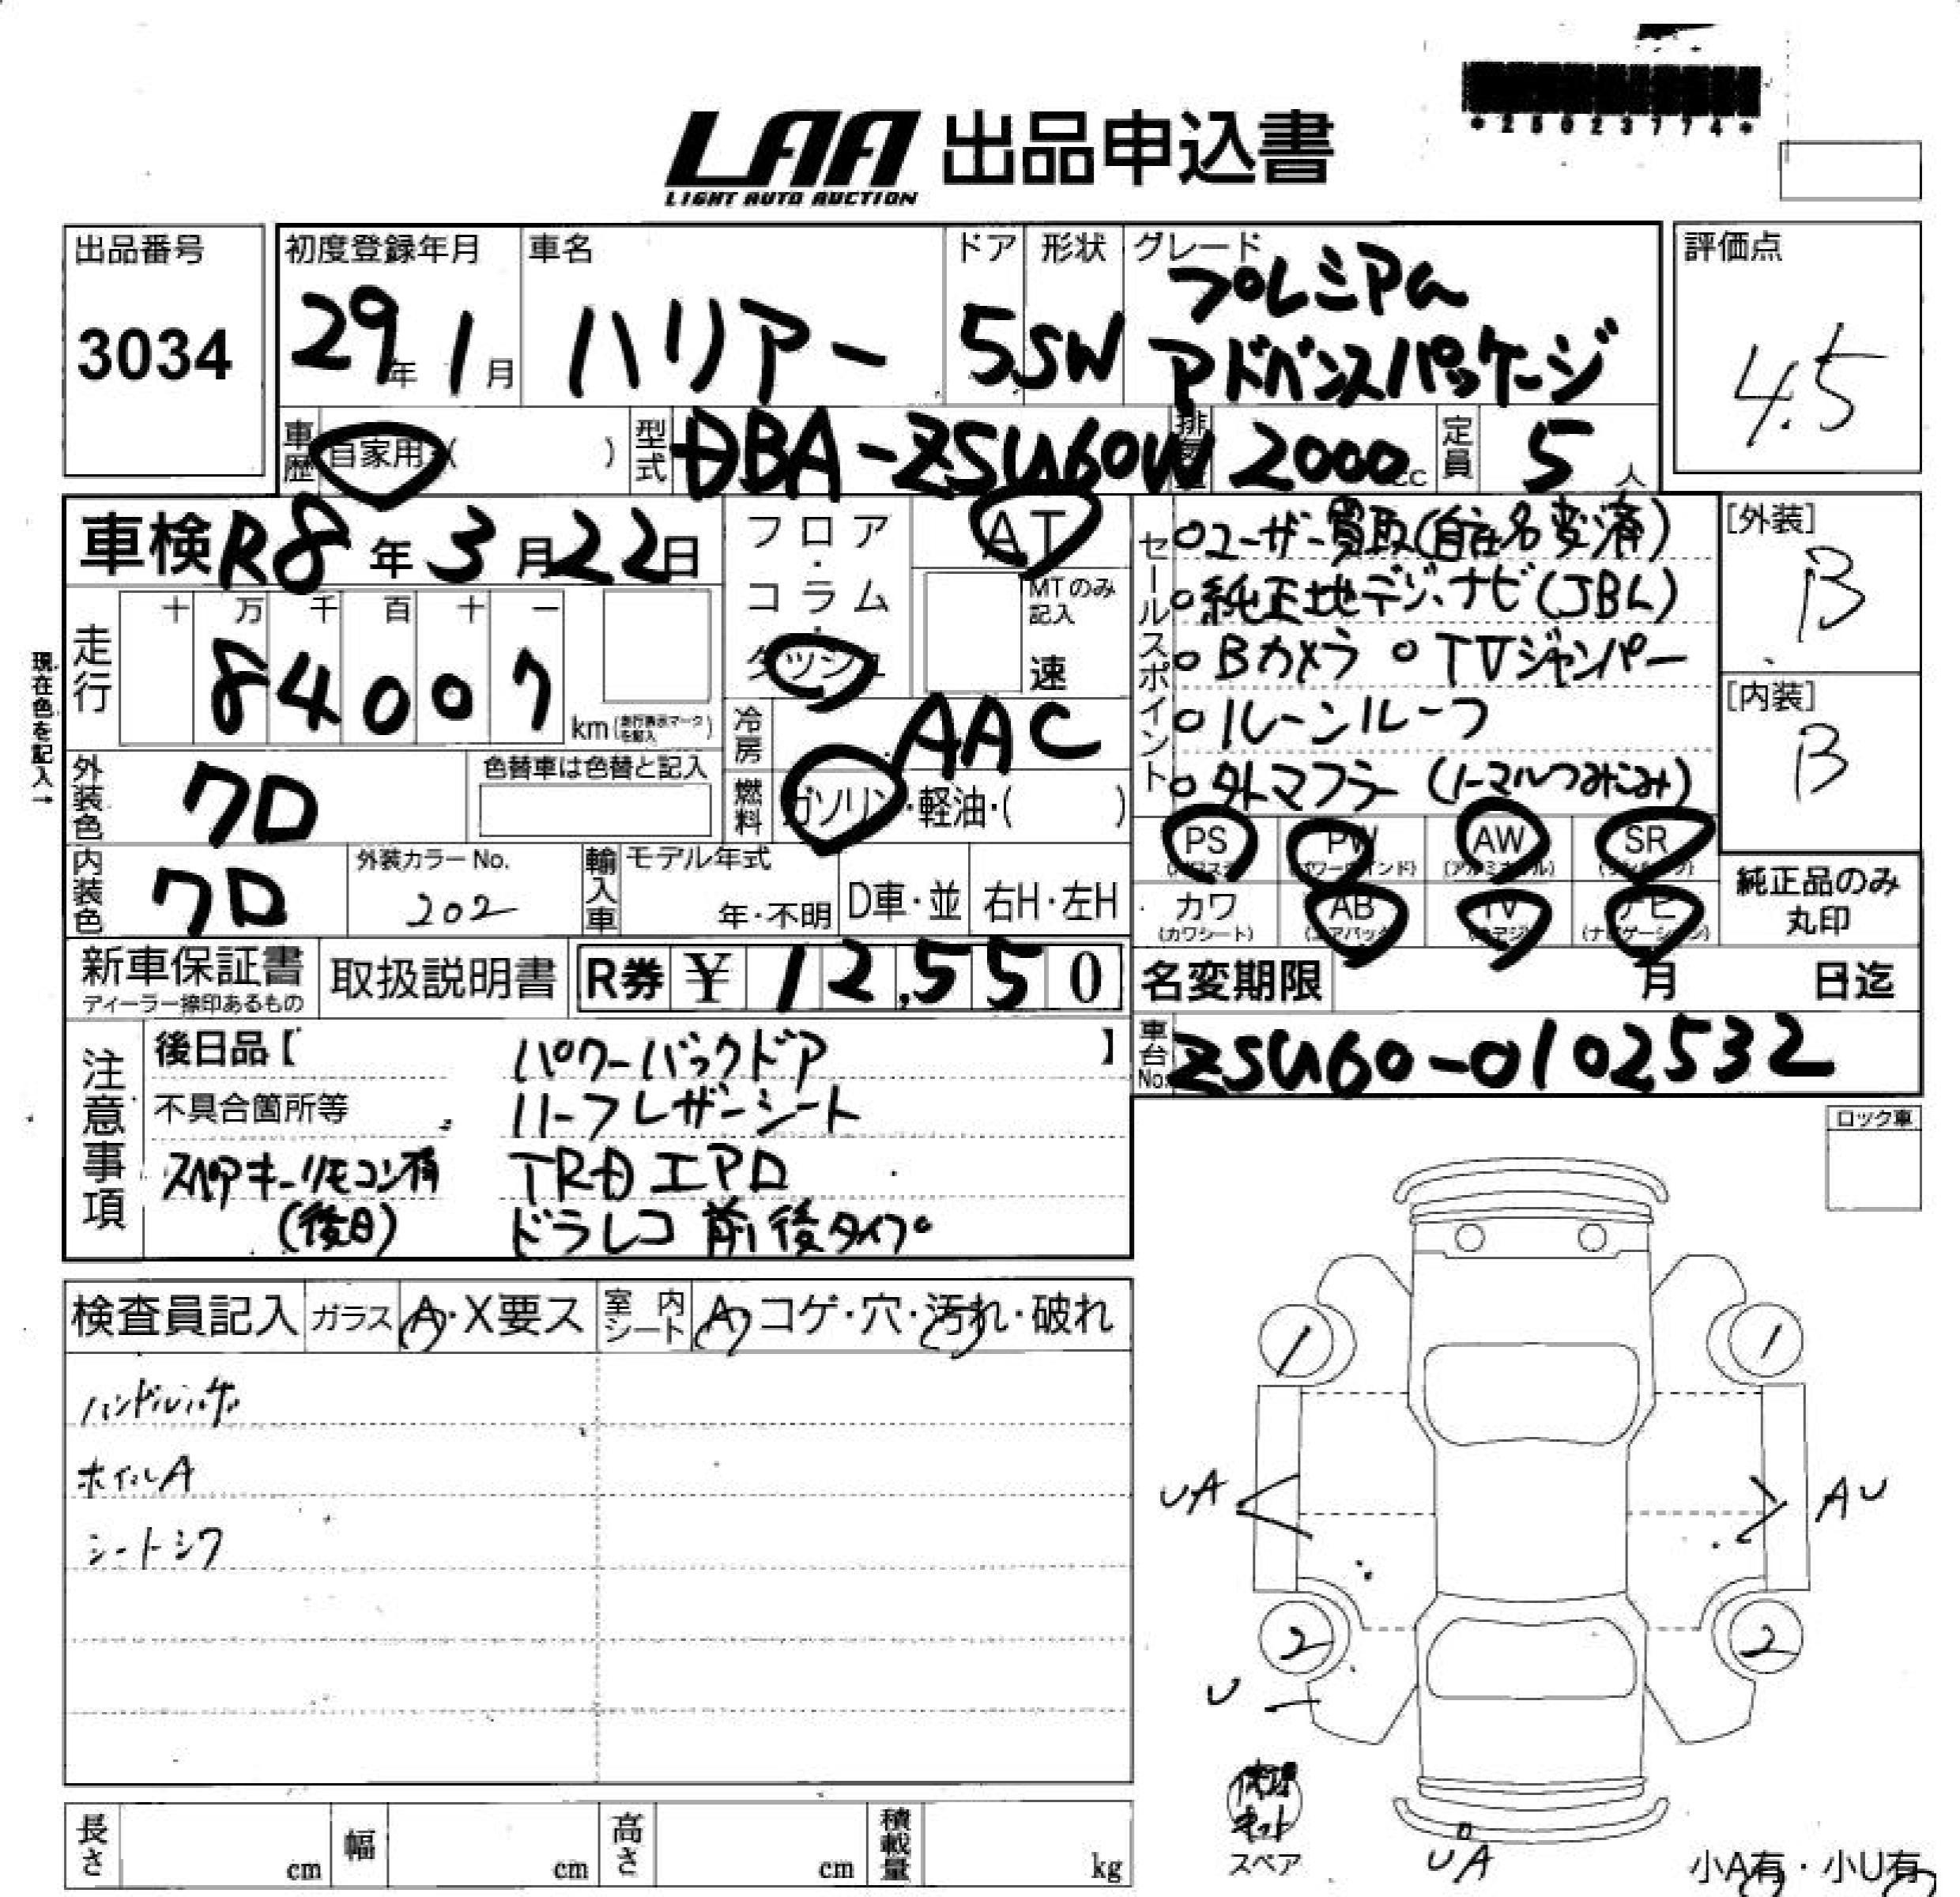 *25023774*
LAA 出品申込書
LIGHT AUTO AUCTION
出品番号
3034
初度登録年月
29年 1月
車名
ハリアー
ドア
5
形状
SW
グレード
プレミアム
アドバンスパッケージ
評価点
4.5
車歴
自家用・( )
型式
DBA-ZSU60W
排気量
2000cc
定員
5人
車検 R8年 3月 22日
フロア・コラム・ダッシュ
AT
MTのみ記入
速
セールスポイント
○ユーザー買取(自社名変済)
○純正地デジ、ナビ(JBL)
○Bカメラ ○TVジャンパー
○ムーンルーフ
○外マフラー (ノーマルつみこみ)
[外装]
B
[内装]
B
現在色を記入→
走行
十 万 千 百 十 一
8 4 0 0 7
km(走行表示マークを記入)
冷房
AAC
外装色
クロ
色替車は色替と記入
燃料
ガソリン・軽油・( )
PS PW AW SR
(パワステ) (パワーウインド) (アルミホイル) (サンルーフ)
内装色
クロ
外装カラーNo.
202
輸入車
モデル年式
年・不明
D車・並
右H・左H
カワ AB TV ナビ
(カワシート) (エアバック) (地デジ) (ナビゲーション)
純正品のみ
丸印
新車保証書
ディーラー捺印あるもの
取扱説明書
R券 ¥ 12,550
名変期限 月 日迄
注意事項
後日品【 】
パワーバックドア
不具合箇所等
ハーフレザーシート
スペアキーリモコン有
TRDエアロ
(後日)
ドラレコ 前後タイプ
車台No.
ZSU60-0102532
ロック車
検査員記入
ガラス
A・X要ス
室内シート
A・コゲ・穴・汚れ・破れ
ハンドルハゲ
ホイルA
シートシワ
1 1
UA AU
2 2
U
修理キット
スペア
UA
小A有・小U有
長さ cm
幅 cm
高さ cm
積載量 kg